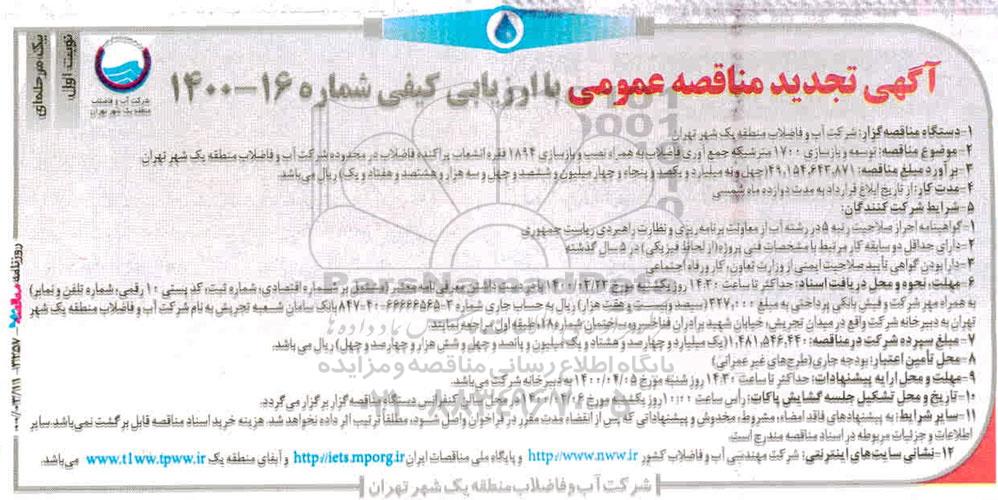 آگهی تجدید مناقصه عمومی با ارزیابی کیفی شماره ۱۶-۱۴۰۰
نوبت اول
یک مرحله‌ای
شرکت آب و فاضلاب
منطقه یک شهر تهران
۱-دستگاه مناقصه گزار: شرکت آب و فاضلاب منطقه یک شهر تهران
۲-موضوع مناقصه: توسعه و بازسازی ۱۷۰۰ متر شبکه جمع آوری فاضلاب به همراه نصب و بازسازی ۱۸۹۴ فقره انشعاب پراکنده فاضلاب در محدوده شرکت آب و فاضلاب منطقه یک شهر تهران
۳-برآورد مبلغ مناقصه: ۴۹,۱۵۴,۶۴۳,۸۷۱ (چهل و نه میلیارد و یکصد و پنجاه و چهار میلیون و ششصد و چهل و سه هزار و هشتصد و هفتاد و یک) ریال می‌باشد.
۴-مدت کار: از تاریخ ابلاغ قرارداد به مدت دوازده ماه شمسی
۵-شرایط شرکت کنندگان:
۱-گواهینامه احراز صلاحیت رتبه ۵ در رشته آب از معاونت برنامه ریزی و نظارت راهبردی ریاست جمهوری
۲-دارای حداقل دو سابقه کار مرتبط با مشخصات فنی پروژه (از لحاظ فیزیکی) در ۵ سال گذشته
۳-دارا بودن گواهی تأیید صلاحیت ایمنی از وزارت تعاون، کار و رفاه اجتماعی
۶-مهلت، نحوه و محل دریافت اسناد: حداکثر تا ساعت ۱۴:۳۰ روز یکشنبه مورخ ۱۴۰۰/۰۳/۲۳ با در دست داشتن معرفی نامه معتبر (مشتمل بر شماره اقتصادی، شماره ثبت، کد پستی ۱۰ رقمی، شماره تلفن و نمابر)
به همراه مهر شرکت و فیش بانکی پرداختی به مبلغ ۳۲۷,۰۰۰ (سیصد و بیست و هفت هزار) ریال به حساب جاری شماره ۳-۶۶۶۶۶۵۶۵-۴۰-۸۴۷ بانک سامان شعبه تجریش به نام شرکت آب و فاضلاب منطقه یک شهر
تهران به دبیرخانه شرکت واقع در میدان تجریش، خیابان شهید برادران فناخسرو، ساختمان شماره ۲۸، طبقه اول مراجعه نمایند.
۷-مبلغ سپرده شرکت در مناقصه: ۱,۴۸۱,۵۴۶,۴۴۰ (یک میلیارد و چهارصد و هشتاد و یک میلیون و پانصد و چهل و شش هزار و چهارصد و چهل) ریال می باشد.
۸-محل تأمین اعتبار: بودجه جاری (طرح‌های غیر عمرانی)
۹-مهلت و محل ارایه پیشنهادات: حداکثر تا ساعت ۱۴:۳۰ روز شنبه مورخ ۱۴۰۰/۰۴/۰۵ به دبیرخانه شرکت می باشد.
۱۰-تاریخ و محل تشکیل جلسه گشایش پاکات: رأس ساعت ۱۰:۰۰ روز یکشنبه مورخ ۱۴۰۰/۰۴/۰۶ در محل سالن کنفرانس دستگاه مناقصه گزار برگزار می گردد.
۱۱-سایر شرایط: به پیشنهادهای فاقد امضاء، مشروط، مخدوش و پیشنهاداتی که پس از انقضاء مدت مقرر در فراخوان واصل شود، مطلقاً ترتیب اثر داده نخواهد شد. هزینه خرید اسناد مناقصه قابل برگشت نمی‌باشد. سایر
اطلاعات و جزئیات مربوطه در اسناد مناقصه مندرج است.
۱۲-نشانی سایت‌های اینترنتی: شرکت مهندسی آب و فاضلاب کشور http://www.nww.ir و پایگاه ملی مناقصات ایران http://iets.mporg.ir و آبفای منطقه یک www.t1ww.tpww.ir می‌باشد.
شرکت آب و فاضلاب منطقه یک شهر تهران
روزنامه مناقصه
ParsNamadData
پایگاه اطلاع رسانی مناقصه و مزایده